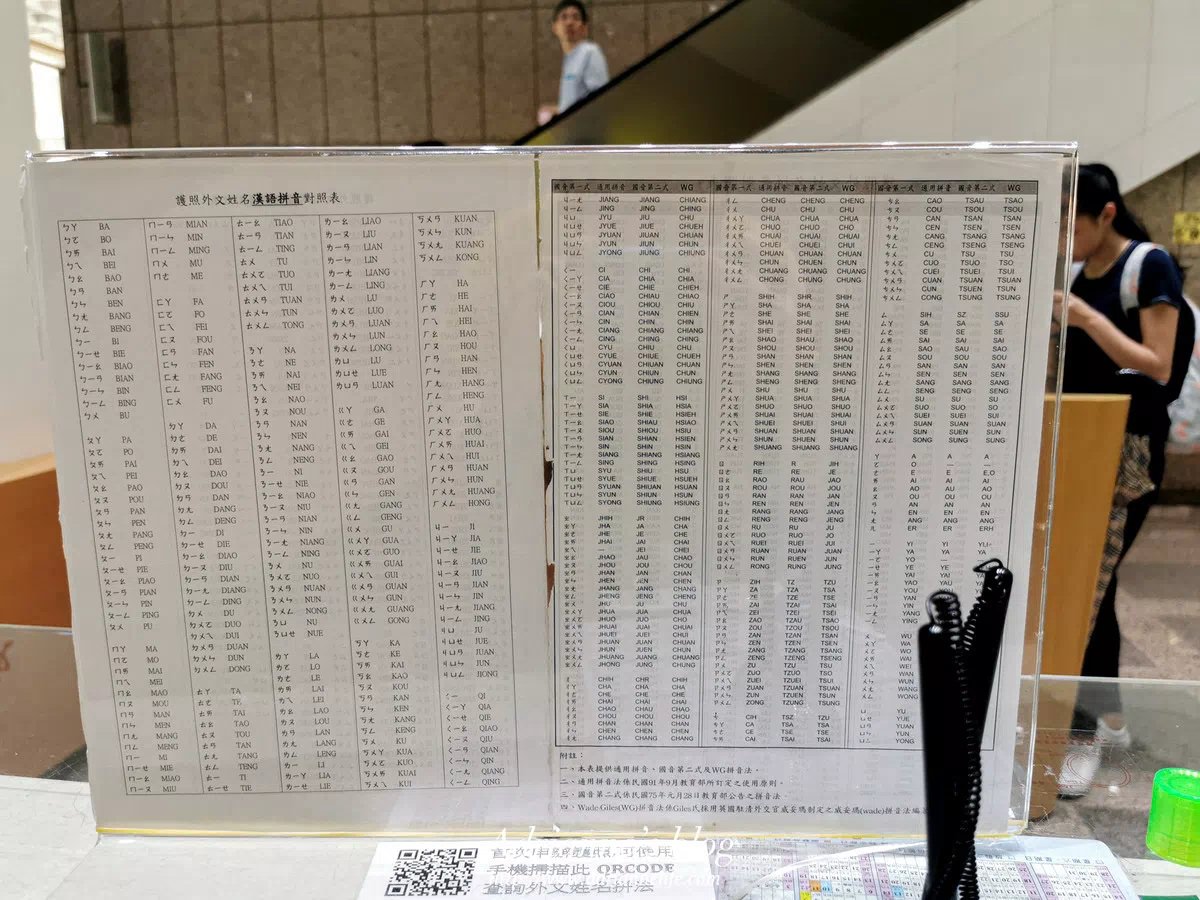 護照外文姓名漢語拼音對照表
ㄅㄚ BA
ㄅㄛ BO
ㄅㄞ BAI
ㄅㄟ BEI
ㄅㄠ BAO
ㄅㄢ BAN
ㄅㄣ BEN
ㄅㄤ BANG
ㄅㄥ BENG
ㄅㄧ BI
ㄅㄧㄝ BIE
ㄅㄧㄠ BIAO
ㄅㄧㄢ BIAN
ㄅㄧㄣ BIN
ㄅㄧㄥ BING
ㄅㄨ BU
ㄆㄚ PA
ㄆㄛ PO
ㄆㄞ PAI
ㄆㄟ PEI
ㄆㄠ PAO
ㄆㄡ POU
ㄆㄢ PAN
ㄆㄣ PEN
ㄆㄤ PANG
ㄆㄥ PENG
ㄆㄧ PI
ㄆㄧㄝ PIE
ㄆㄧㄠ PIAO
ㄆㄧㄢ PIAN
ㄆㄧㄣ PIN
ㄆㄧㄥ PING
ㄆㄨ PU
ㄇㄚ MA
ㄇㄛ MO
ㄇㄞ MAI
ㄇㄟ MEI
ㄇㄠ MAO
ㄇㄡ MOU
ㄇㄢ MAN
ㄇㄣ MEN
ㄇㄤ MANG
ㄇㄥ MENG
ㄇㄧ MI
ㄇㄧㄝ MIE
ㄇㄧㄠ MIAO
ㄇㄧㄡ MIU
ㄇㄧㄢ MIAN
ㄇㄧㄣ MIN
ㄇㄧㄥ MING
ㄇㄨ MU
ㄇㄜ ME
ㄈㄚ FA
ㄈㄛ FO
ㄈㄟ FEI
ㄈㄡ FOU
ㄈㄢ FAN
ㄈㄣ FEN
ㄈㄤ FANG
ㄈㄥ FENG
ㄈㄨ FU
ㄉㄚ DA
ㄉㄜ DE
ㄉㄞ DAI
ㄉㄟ DEI
ㄉㄠ DAO
ㄉㄡ DOU
ㄉㄢ DAN
ㄉㄤ DANG
ㄉㄥ DENG
ㄉㄧ DI
ㄉㄧㄝ DIE
ㄉㄧㄠ DIAO
ㄉㄧㄡ DIU
ㄉㄧㄢ DIAN
ㄉㄧㄤ DIANG
ㄉㄧㄥ DING
ㄉㄨ DU
ㄉㄨㄛ DUO
ㄉㄨㄟ DUI
ㄉㄨㄢ DUAN
ㄉㄨㄣ DUN
ㄉㄨㄥ DONG
ㄊㄚ TA
ㄊㄜ TE
ㄊㄞ TAI
ㄊㄠ TAO
ㄊㄡ TOU
ㄊㄢ TAN
ㄊㄤ TANG
ㄊㄥ TENG
ㄊㄧ TI
ㄊㄧㄝ TIE
ㄊㄧㄠ TIAO
ㄊㄧㄢ TIAN
ㄊㄧㄥ TING
ㄊㄨ TU
ㄊㄨㄛ TUO
ㄊㄨㄟ TUI
ㄊㄨㄢ TUAN
ㄊㄨㄣ TUN
ㄊㄨㄥ TONG
ㄋㄚ NA
ㄋㄜ NE
ㄋㄞ NAI
ㄋㄟ NEI
ㄋㄠ NAO
ㄋㄡ NOU
ㄋㄢ NAN
ㄋㄣ NEN
ㄋㄤ NANG
ㄋㄥ NENG
ㄋㄧ NI
ㄋㄧㄝ NIE
ㄋㄧㄠ NIAO
ㄋㄧㄡ NIU
ㄋㄧㄢ NIAN
ㄋㄧㄣ NIN
ㄋㄧㄤ NIANG
ㄋㄧㄥ NING
ㄋㄨ NU
ㄋㄨㄛ NUO
ㄋㄨㄢ NUAN
ㄋㄨㄣ NUN
ㄋㄨㄥ NONG
ㄋㄩ NU
ㄋㄩㄝ NUE
ㄌㄚ LA
ㄌㄛ LO
ㄌㄜ LE
ㄌㄞ LAI
ㄌㄟ LEI
ㄌㄠ LAO
ㄌㄡ LOU
ㄌㄢ LAN
ㄌㄤ LANG
ㄌㄥ LENG
ㄌㄧ LI
ㄌㄧㄚ LIA
ㄌㄧㄝ LIE
ㄌㄧㄠ LIAO
ㄌㄧㄡ LIU
ㄌㄧㄢ LIAN
ㄌㄧㄣ LIN
ㄌㄧㄤ LIANG
ㄌㄧㄥ LING
ㄌㄨ LU
ㄌㄨㄛ LUO
ㄌㄨㄢ LUAN
ㄌㄨㄣ LUN
ㄌㄨㄥ LONG
ㄌㄩ LU
ㄌㄩㄝ LUE
ㄌㄩㄢ LUAN
ㄍㄚ GA
ㄍㄜ GE
ㄍㄞ GAI
ㄍㄟ GEI
ㄍㄠ GAO
ㄍㄡ GOU
ㄍㄢ GAN
ㄍㄣ GEN
ㄍㄤ GANG
ㄍㄥ GENG
ㄍㄨ GU
ㄍㄨㄚ GUA
ㄍㄨㄛ GUO
ㄍㄨㄞ GUAI
ㄍㄨㄟ GUI
ㄍㄨㄢ GUAN
ㄍㄨㄣ GUN
ㄍㄨㄤ GUANG
ㄍㄨㄥ GONG
ㄎㄚ KA
ㄎㄜ KE
ㄎㄞ KAI
ㄎㄠ KAO
ㄎㄡ KOU
ㄎㄢ KAN
ㄎㄣ KEN
ㄎㄤ KANG
ㄎㄥ KENG
ㄎㄨ KU
ㄎㄨㄚ KUA
ㄎㄨㄛ KUO
ㄎㄨㄞ KUAI
ㄎㄨㄟ KUI
ㄎㄨㄢ KUAN
ㄎㄨㄣ KUN
ㄎㄨㄤ KUANG
ㄎㄨㄥ KONG
ㄏㄚ HA
ㄏㄜ HE
ㄏㄞ HAI
ㄏㄟ HEI
ㄏㄠ HAO
ㄏㄡ HOU
ㄏㄢ HAN
ㄏㄣ HEN
ㄏㄤ HANG
ㄏㄥ HENG
ㄏㄨ HU
ㄏㄨㄚ HUA
ㄏㄨㄛ HUO
ㄏㄨㄞ HUAI
ㄏㄨㄟ HUI
ㄏㄨㄢ HUAN
ㄏㄨㄣ HUN
ㄏㄨㄤ HUANG
ㄏㄨㄥ HONG
ㄐㄧ JI
ㄐㄧㄚ JIA
ㄐㄧㄝ JIE
ㄐㄧㄠ JIAO
ㄐㄧㄡ JIU
ㄐㄧㄢ JIAN
ㄐㄧㄣ JIN
ㄐㄧㄤ JIANG
ㄐㄧㄥ JING
ㄐㄩ JU
ㄐㄩㄝ JUE
ㄐㄩㄢ JUAN
ㄐㄩㄣ JUN
ㄐㄩㄥ JIONG
ㄑㄧ QI
ㄑㄧㄚ QIA
ㄑㄧㄝ QIE
ㄑㄧㄠ QIAO
ㄑㄧㄡ QIU
ㄑㄧㄢ QIAN
ㄑㄧㄣ QIN
ㄑㄧㄤ QIANG
ㄑㄧㄥ QING
國音第一式 通用拼音 國音第二式 WG
ㄐㄧㄤ JIANG JIANG CHIANG
ㄐㄧㄥ JING JING CHING
ㄐㄩ JYU JIU CHU
ㄐㄩㄝ JYUE JIUE CHUEH
ㄐㄩㄢ JYUAN JIUAN CHUAN
ㄐㄩㄣ JYUN JIUN CHUN
ㄐㄩㄥ JYONG JIUNG CHIUNG
ㄑㄧ CI CHI CHI
ㄑㄧㄚ CIA CHIA CHIA
ㄑㄧㄝ CIE CHIE CHIEH
ㄑㄧㄠ CIAO CHIAU CHIAO
ㄑㄧㄡ CIOU CHIOU CHIU
ㄑㄧㄢ CIAN CHIAN CHIEN
ㄑㄧㄣ CIN CHIN CHIN
ㄑㄧㄤ CIANG CHIANG CHIANG
ㄑㄧㄥ CING CHING CHING
ㄑㄩ CYU CHIU CHU
ㄑㄩㄝ CYUE CHIUE CHUEH
ㄑㄩㄢ CYUAN CHIUAN CHUAN
ㄑㄩㄣ CYUN CHIUN CHUN
ㄑㄩㄥ CYONG CHIUNG CHIUNG
ㄒㄧ SI SHI HSI
ㄒㄧㄚ SIA SHIA HSIA
ㄒㄧㄝ SIE SHIE HSIEH
ㄒㄧㄠ SIAO SHIAU HSIAO
ㄒㄧㄡ SIOU SHIOU HSIU
ㄒㄧㄢ SIAN SHIAN HSIEN
ㄒㄧㄣ SIN SHIN HSIN
ㄒㄧㄤ SIANG SHIANG HSIANG
ㄒㄧㄥ SING SHING HSING
ㄒㄩ SYU SHIU HSU
ㄒㄩㄝ SYUE SHIUE HSUEH
ㄒㄩㄢ SYUAN SHIUAN HSUAN
ㄒㄩㄣ SYUN SHIUN HSUN
ㄒㄩㄥ SYONG SHIUNG HSIUNG
ㄓ JHIH JR CHIH
ㄓㄚ JHA JA CHA
ㄓㄜ JHE JE CHE
ㄓㄟ — JEI CHEI
ㄓㄠ JHAO JAU CHAO
ㄓㄡ JHOU JOU CHOU
ㄓㄢ JHAN JAN CHAN
ㄓㄣ JHEN JEN CHEN
ㄓㄤ JHANG JANG CHANG
ㄓㄥ JHENG JENG CHENG
ㄓㄨ JHU JU CHU
ㄓㄨㄚ JHUA JUA CHUA
ㄓㄨㄛ JHUO JUO CHO
ㄓㄨㄞ JHUAI JUAI CHUAI
ㄓㄨㄟ JHUEI JUEI CHUI
ㄓㄨㄢ JHUAN JUAN CHUAN
ㄓㄨㄣ JHUN JUEN CHUN
ㄓㄨㄤ JHUANG JUANG CHUANG
ㄓㄨㄥ JHONG JUNG CHUNG
ㄔ CHIH CHR CHIH
ㄔㄚ CHA CHA CHA
ㄔㄜ CHE CHE CHE
ㄔㄞ CHAI CHAI CHAI
ㄔㄠ CHAO CHAU CHAO
ㄔㄡ CHOU CHOU CHOU
ㄔㄢ CHAN CHAN CHAN
ㄔㄣ CHEN CHEN CHEN
ㄔㄤ CHANG CHANG CHANG
國音第一式 通用拼音 國音第二式 WG
ㄔㄥ CHENG CHENG CHENG
ㄔㄨ CHU CHU CHU
ㄔㄨㄚ CHUA CHUA CHUA
ㄔㄨㄛ CHUO CHUO CHO
ㄔㄨㄞ CHUAI CHUAI CHUAI
ㄔㄨㄟ CHUEI CHUEI CHUI
ㄔㄨㄢ CHUAN CHUAN CHUAN
ㄔㄨㄣ CHUN CHUEN CHUN
ㄔㄨㄤ CHUANG CHUANG CHUANG
ㄔㄨㄥ CHONG CHUNG CHUNG
ㄕ SHIH SHR SHIH
ㄕㄚ SHA SHA SHA
ㄕㄜ SHE SHE SHE
ㄕㄞ SHAI SHAI SHAI
ㄕㄟ SHEI SHEI SHEI
ㄕㄠ SHAO SHAU SHAO
ㄕㄡ SHOU SHOU SHOU
ㄕㄢ SHAN SHAN SHAN
ㄕㄣ SHEN SHEN SHEN
ㄕㄤ SHANG SHANG SHANG
ㄕㄥ SHENG SHENG SHENG
ㄕㄨ SHU SHU SHU
ㄕㄨㄚ SHUA SHUA SHUA
ㄕㄨㄛ SHUO SHUO SHUO
ㄕㄨㄞ SHUAI SHUAI SHUAI
ㄕㄨㄟ SHUEI SHUEI SHUI
ㄕㄨㄢ SHUAN SHUAN SHUAN
ㄕㄨㄣ SHUN SHUEN SHUN
ㄕㄨㄤ SHUANG SHUANG SHUANG
ㄖ RIH R JIH
ㄖㄜ RE RE JE
ㄖㄠ RAO RAU JAO
ㄖㄡ ROU ROU JOU
ㄖㄢ RAN RAN JAN
ㄖㄣ REN REN JEN
ㄖㄤ RANG RANG JANG
ㄖㄥ RENG RENG JENG
ㄖㄨ RU RU JU
ㄖㄨㄛ RUO RUO JO
ㄖㄨㄟ RUEI RUEI JUI
ㄖㄨㄢ RUAN RUAN JUAN
ㄖㄨㄣ RUN RUEN JUN
ㄖㄨㄥ RONG RUNG JUNG
ㄗ ZIH TZ TZU
ㄗㄚ ZA TZA TSA
ㄗㄜ ZE TZE TSE
ㄗㄞ ZAI TZAI TSAI
ㄗㄟ ZEI TZEI TSEI
ㄗㄠ ZAO TZAU TSAO
ㄗㄡ ZOU TZOU TSOU
ㄗㄢ ZAN TZAN TSAN
ㄗㄣ ZEN TZEN TSEN
ㄗㄤ ZANG TZANG TSANG
ㄗㄥ ZENG TZENG TSENG
ㄗㄨ ZU TZU TSU
ㄗㄨㄛ ZUO TZUO TSO
ㄗㄨㄟ ZUEI TZUEI TSUI
ㄗㄨㄢ ZUAN TZUAN TSUAN
ㄗㄨㄣ ZUN TZUEN TSUN
ㄗㄨㄥ ZONG TZUNG TSUNG
ㄘ CIH TSZ TZU
ㄘㄚ CA TSA TSA
ㄘㄜ CE TSE TSE
ㄘㄞ CAI TSAI TSAI
國音第一式 通用拼音 國音第二式 WG
ㄘㄠ CAO TSAU TSAO
ㄘㄡ COU TSOU TSOU
ㄘㄢ CAN TSAN TSAN
ㄘㄣ CEN TSEN TSEN
ㄘㄤ CANG TSANG TSANG
ㄘㄥ CENG TSENG TSENG
ㄘㄨ CU TSU TSU
ㄘㄨㄛ CUO TSUO TSO
ㄘㄨㄟ CUEI TSUEI TSUI
ㄘㄨㄢ CUAN TSUAN TSUAN
ㄘㄨㄣ CUN TSUEN TSUN
ㄘㄨㄥ CONG TSUNG TSUNG
ㄙ SIH SZ SSU
ㄙㄚ SA SA SA
ㄙㄜ SE SE SE
ㄙㄞ SAI SAI SAI
ㄙㄠ SAO SAU SAO
ㄙㄡ SOU SOU SOU
ㄙㄢ SAN SAN SAN
ㄙㄣ SEN SEN SEN
ㄙㄤ SANG SANG SANG
ㄙㄥ SENG SENG SENG
ㄙㄨ SU SU SU
ㄙㄨㄛ SUO SUO SO
ㄙㄨㄟ SUEI SUEI SUI
ㄙㄨㄢ SUAN SUAN SUAN
ㄙㄨㄣ SUN SUEN SUN
ㄙㄨㄥ SONG SUNG SUNG
ㄚ A A A
ㄛ O — —
ㄜ E E E,O
ㄞ AI AI AI
ㄠ AO AU AO
ㄡ OU OU OU
ㄢ AN AN AN
ㄣ EN EN EN
ㄤ ANG ANG ANG
ㄦ ER ER ERH
ㄧ YI YI YI,I
ㄧㄚ YA YA YA
ㄧㄛ YO
ㄧㄝ YE YE
ㄧㄞ YAI YAI
ㄧㄠ YAO
ㄧㄡ YOU
ㄧㄢ YAN
ㄧㄣ YIN
ㄧㄤ YANG
ㄧㄥ YING
ㄨ WU
ㄨㄚ WA
ㄨㄛ WO
ㄨㄞ WAI
ㄨㄟ WEI
ㄨㄢ WAN
ㄨㄣ WUN
ㄨㄤ WANG
ㄨㄥ WONG
ㄩ YU
ㄩㄝ YUE
ㄩㄢ YUAN
ㄩㄣ YUN
ㄩㄥ YONG
附註：
一、本表提供通用拼音、國音第二式及WG拼音。
二、通用拼音法係民國91年9月教育部所訂定之使用原則。
三、國音第二式係民國75年元月28日教育部公告之拼音法
四、Wade-Giles(WG)拼音法係Giles氏採用英國駐清外交官威妥瑪制定之威妥瑪(wade)拼音法編
首次申辦護照,可使用
手機掃描此 QRCODE
查詢外文姓名拼法